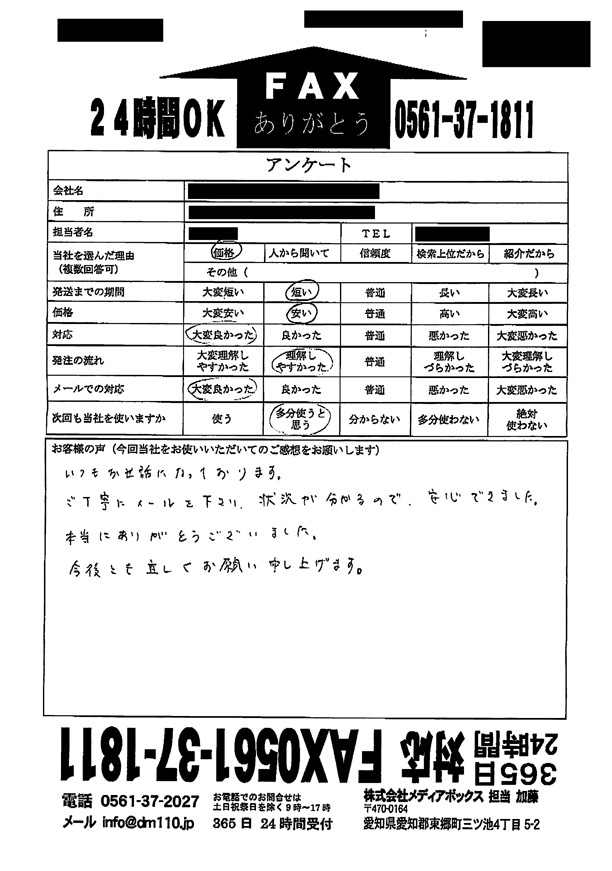 FAX
24時間OK ありがとう 0561-37-1811
アンケート
会社名
住 所
担当者名 TEL
当社を選んだ理由(複数回答可) 価格 人から聞いて 信頼度 検索上位だから 紹介だから
その他( )
発送までの期間 大変短い 短い 普通 長い 大変長い
価格 大変安い 安い 普通 高い 大変高い
対応 大変良かった 良かった 普通 悪かった 大変悪かった
発注の流れ 大変理解しやすかった 理解しやすかった 普通 理解しづらかった 大変理解しづらかった
メールでの対応 大変良かった 良かった 普通 悪かった 大変悪かった
次回も当社を使いますか 使う 多分使うと思う 分からない 多分使わない 絶対使わない
お客様の声(今回当社をお使いいただいてのご感想をお願いします)
いつもお世話になっております。
ご丁寧にメールを下さり、状況が分かるので、安心できました。
本当にありがとうございました。
今後とも宜しくお願い申し上げます。
365日24時間 対応 FAX0561-37-1811
電話 0561-37-2027 お電話でのお問合せは土日祝祭日を除く9時~17時 株式会社メディアボックス 担当 加藤
〒470-0164
メール info@dm110.jp 365日24時間受付 愛知県愛知郡東郷町三ツ池4丁目5-2